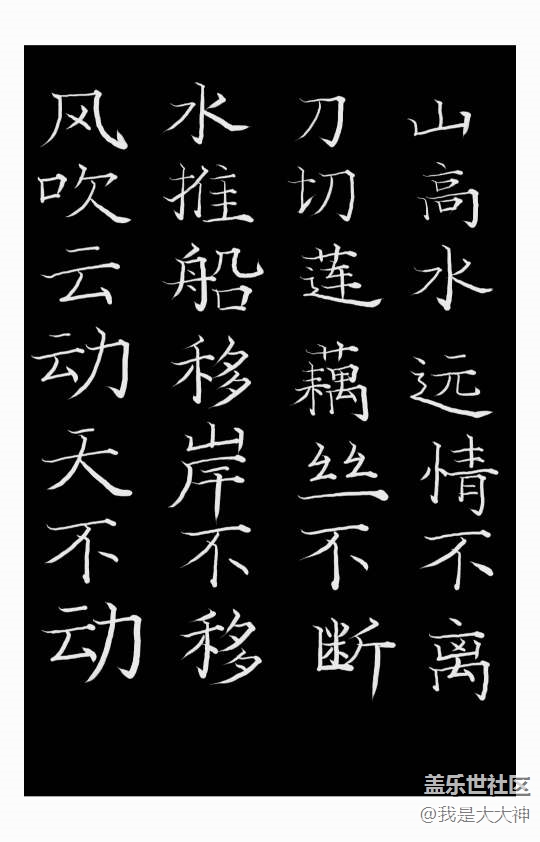 风吹云动天不动
水推船移岸不移
刀切莲藕丝不断
山高水远情不离
盖乐世社区
@我是大大神